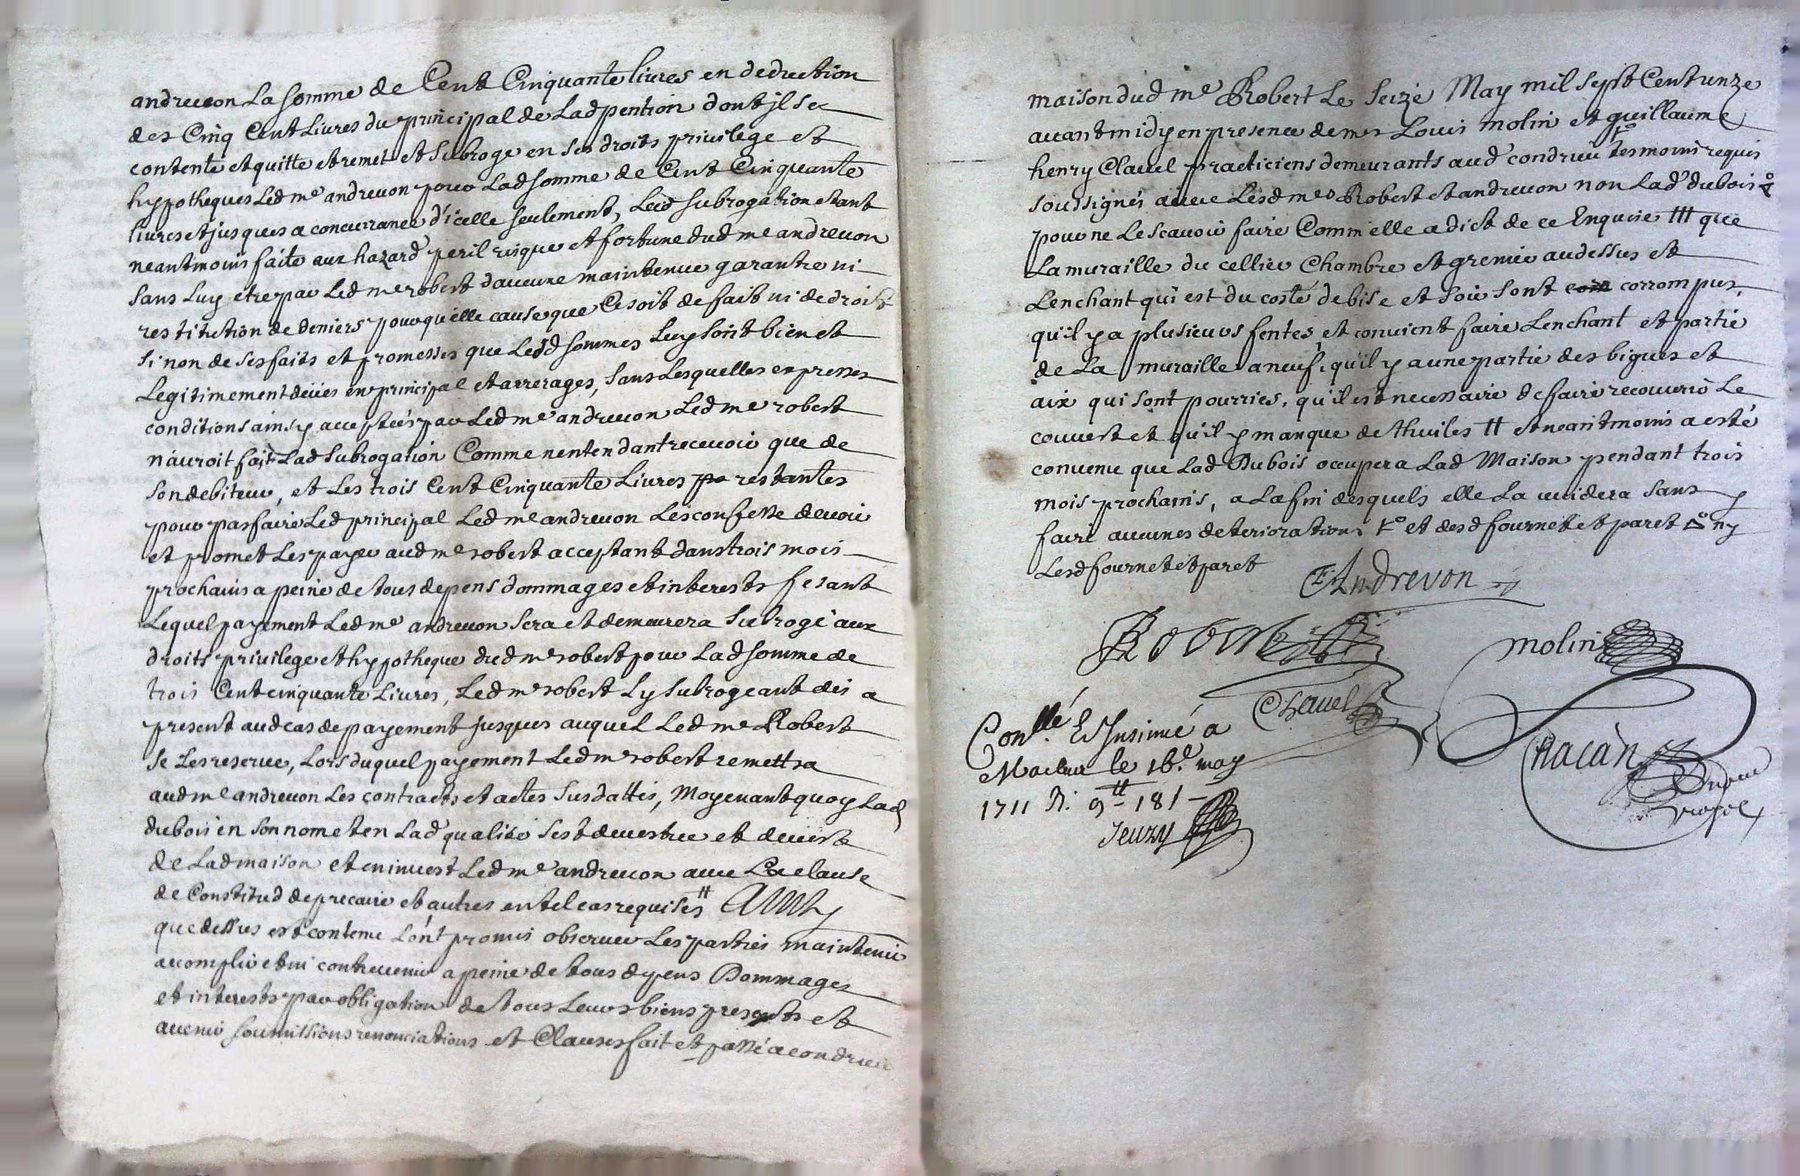 andrevon La somme de Cent Cinquante livres en deduction
des Cinq Cent Livres du principal de Ladpention dont jl se
contente et quitte et remet et subroge en ses droits privilege et
hypotheques Led me andrevon pour Lad somme de Cent Cinquante
livres et jusques a concurrance d'icelle seulement, Lad subrogation etant
neantmoins faite aux hazard peril risque et fortune dud me andrevon
sans Luy etre par Led me robert d'aucune maintenue garantie ni
restitution de deniers pour quelle cause que Ce soit de fait ni de droit
si non de ses faits et promesses que Lesd sommes Luy sont bien et
Legitimement deües en principal et arrerages, sans Lesquelles expresses
conditions ainsy acceptées par Led me andrevon Led me robert
n'auroit fait Lad subrogation Comme nentendant recevoir que de
son debiteur, et Les trois Cent Cinquante Livres restantes
pour parfaire Led principal Led me andrevon Les confesse devoir
et promet Les payer aud me robert acceptant dans trois mois
prochains a peine de tous depens dommages et interests fesant
Lequel payement Led me andrevon sera et demeurera subrogé aux
droits privilege et hypotheque dud me robert pour Lad somme de
trois Cent cinquante Livres, Led me robert Ly subrogeant des a
present aud cas de payement jusques auquel Led me Robert
se Les reserve, Lors duquel payement Led me robert remettra
aud me andrevon Les contracts et actes susdattés, Moyenant quoy Lad
dubois en son nom et en Lad qualité sest devestue et devest
de Lad maison et en invest Led me andrevon avec La clause
de Constitud de precaire et autres en tel cas requises # Ainsy
que dessus est contenu L'ont promis observer Les parties maintenir
accomplir et ni contrevenir a peine de tous depens Dommages
et interests par obligation de tous Leurs biens presents et
avenir soumissions renonciations et Clauses fait et passé a condrieu
maison dud me Robert Le seize May mil sept Cent unze
avant midy en presence de mes Louis molin et guillaume
henry Clavel practiciens demeurants aud condrieu tesmoins requis
soussignés avec Lesd mes Robert et andrevon non Lad dubois
pour ne Le scavoir faire Comm'elle a dict de ce Enquise ttt que
La muraille du cellier Chambre et grenier audessus et
Lenchant qui est du costé de bise et soir sont corrompus,
qu'il y a plusieurs fentes et convient faire Lenchant et partie
de La muraille a neuf, qu'il y a une partie des bigues et
aix qui sont pourries, qu'il est necessaire de faire recouvrir Le
couvert et qu'il y manque de thuiles tt et neantmoins a esté
convenu que Lad Dubois occupera Lad Maison pendant trois
mois prochains, a La fin desquels elle La vuidera sans y
faire aucunes deteriorations et desd fournet et paret ny
Lesd fournet et paret
Andrevon
Robert
molin
Clavel
Conllé & Insinué a
le 16e may
1711 R. 9tt - 18 s -
Jeury
Chacan